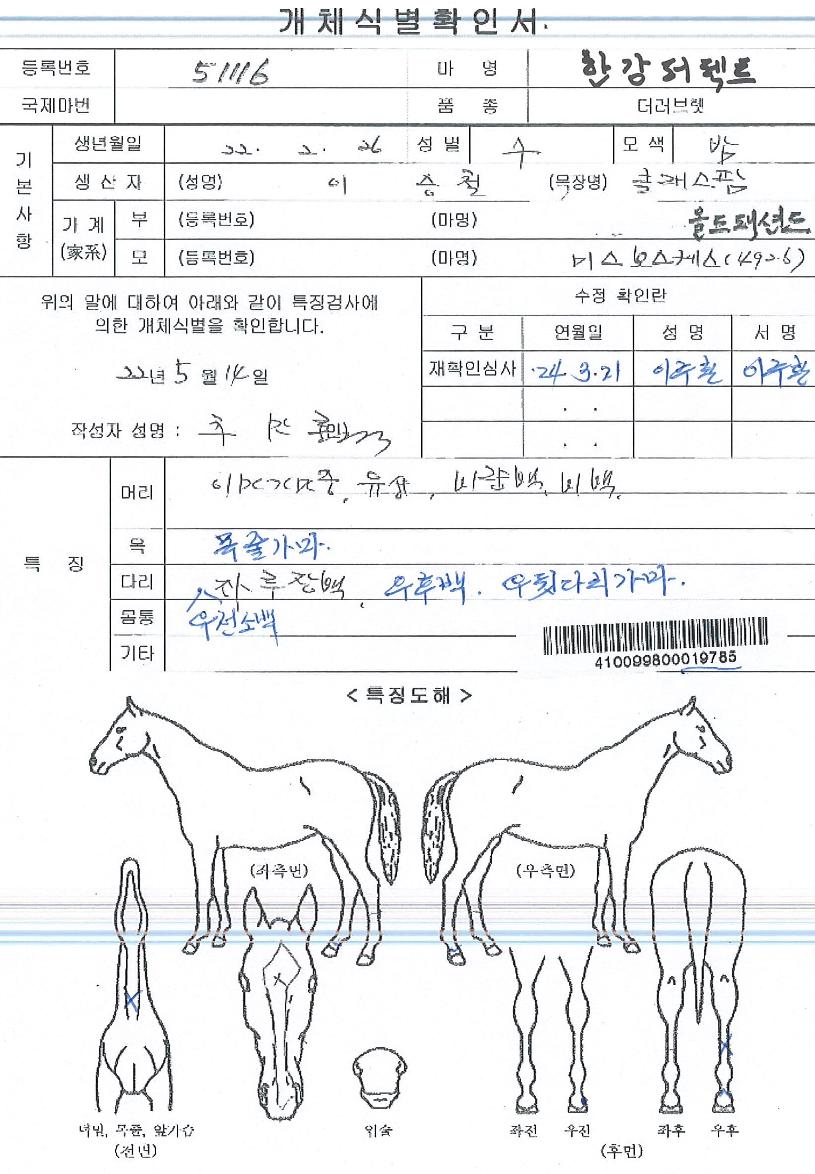 개체식별확인서.
등록번호 51116 마 명 한강더펙트
국제마번 품 종 더러브렛
기본사항
생년월일 22. 2. 26 성 별 수 모 색 밤
생 산 자 (성명) 이 승철 (목장명) 클래스팜
가 계 (家系)
부 (등록번호) (마명) 올드패션드
모 (등록번호) (마명) 미스보스케스(4926)
위의 말에 대하여 아래와 같이 특징검사에
의한 개체식별을 확인합니다.
22년 5월 14일
작성자 성명 :
수정 확인란
구 분 연월일 성 명 서 명
재확인심사 '24 3.21 이주환 이주환
. .
. .
특 징
머리 유성, 비량백, 비백.
목 목줄가마.
다리 좌후장백, 우후백. 우뒷다리가마.
몸통 우전소백
기타
410099800019785
< 특징도해 >
(좌측면) (우측면)
턱밑, 목줄, 앞가슴
(전면)
입술
좌전 우전 좌후 우후
(후면)